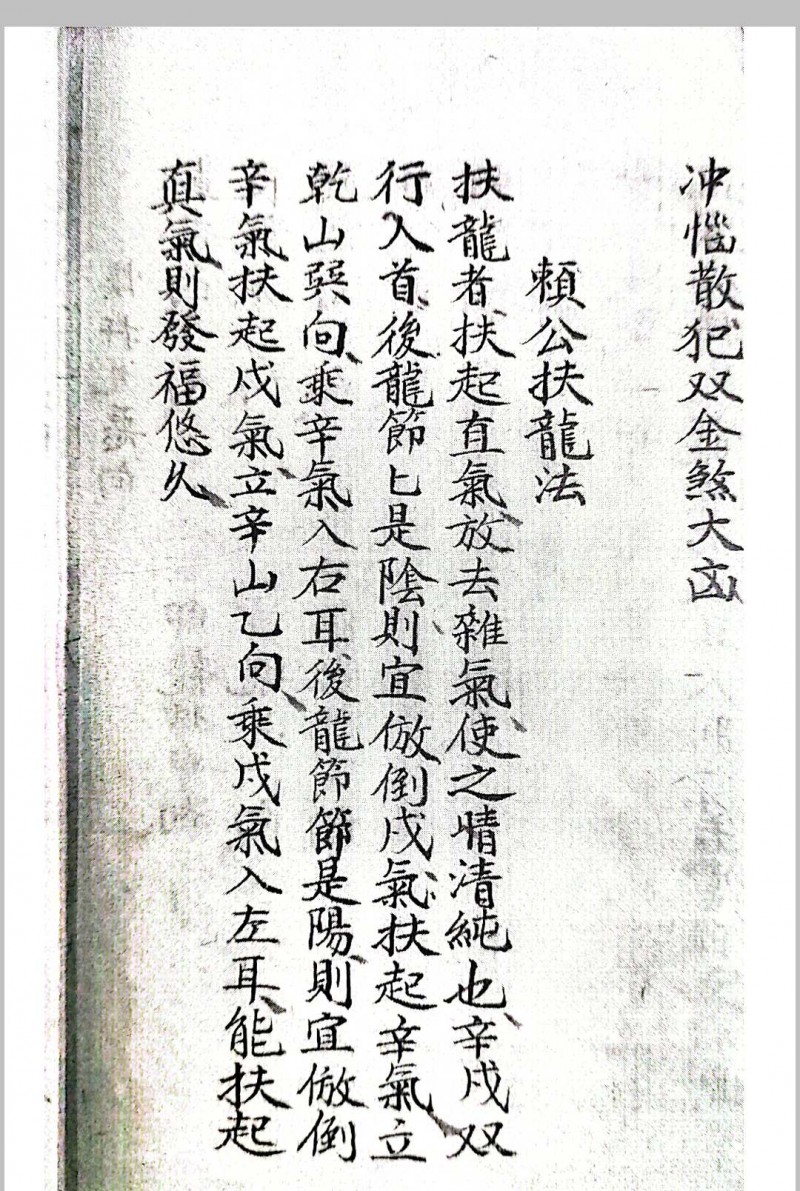 冲惱散犯双金煞大凶
賴公扶龍法
扶龍者扶起直氣放去雜氣使之晴清純也辛戍双
行入首後龍節匕是陰則宜倣倒戍氣扶起辛氣立
乾山巽向乘辛氣入右耳後龍節節是陽則宜倣倒
辛氣扶起戍氣立辛山乙向乘戍氣入左耳能扶起
真氣則發福悠久